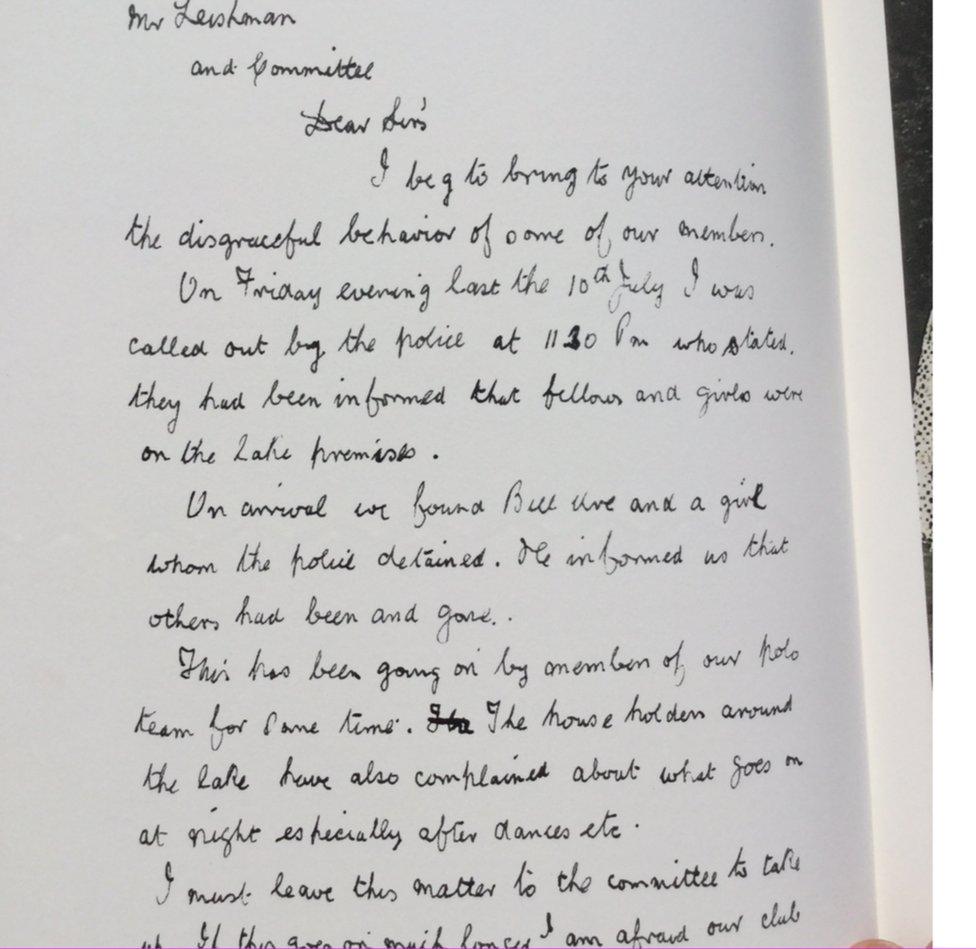 Mr Leishman
and Committee
Dear Sir's
I beg to bring to your attention
the disgraceful behavior of some of our members.
On Friday evening last the 10th July I was
called out by the police at 11 30 Pm who stated.
they had been informed that fellows and girls were
on the Lake premises.
On arrival we found Bill Ure and a girl
whom the police detained. He informed us that
others had been and gone..
This has been going on by members of our polo
team for some time. The house holders around
the Lake have also complained about what goes on
at night especially after dances etc.
I must leave this matter to the committee to take
up. If this goes on much longer I am afraid our club